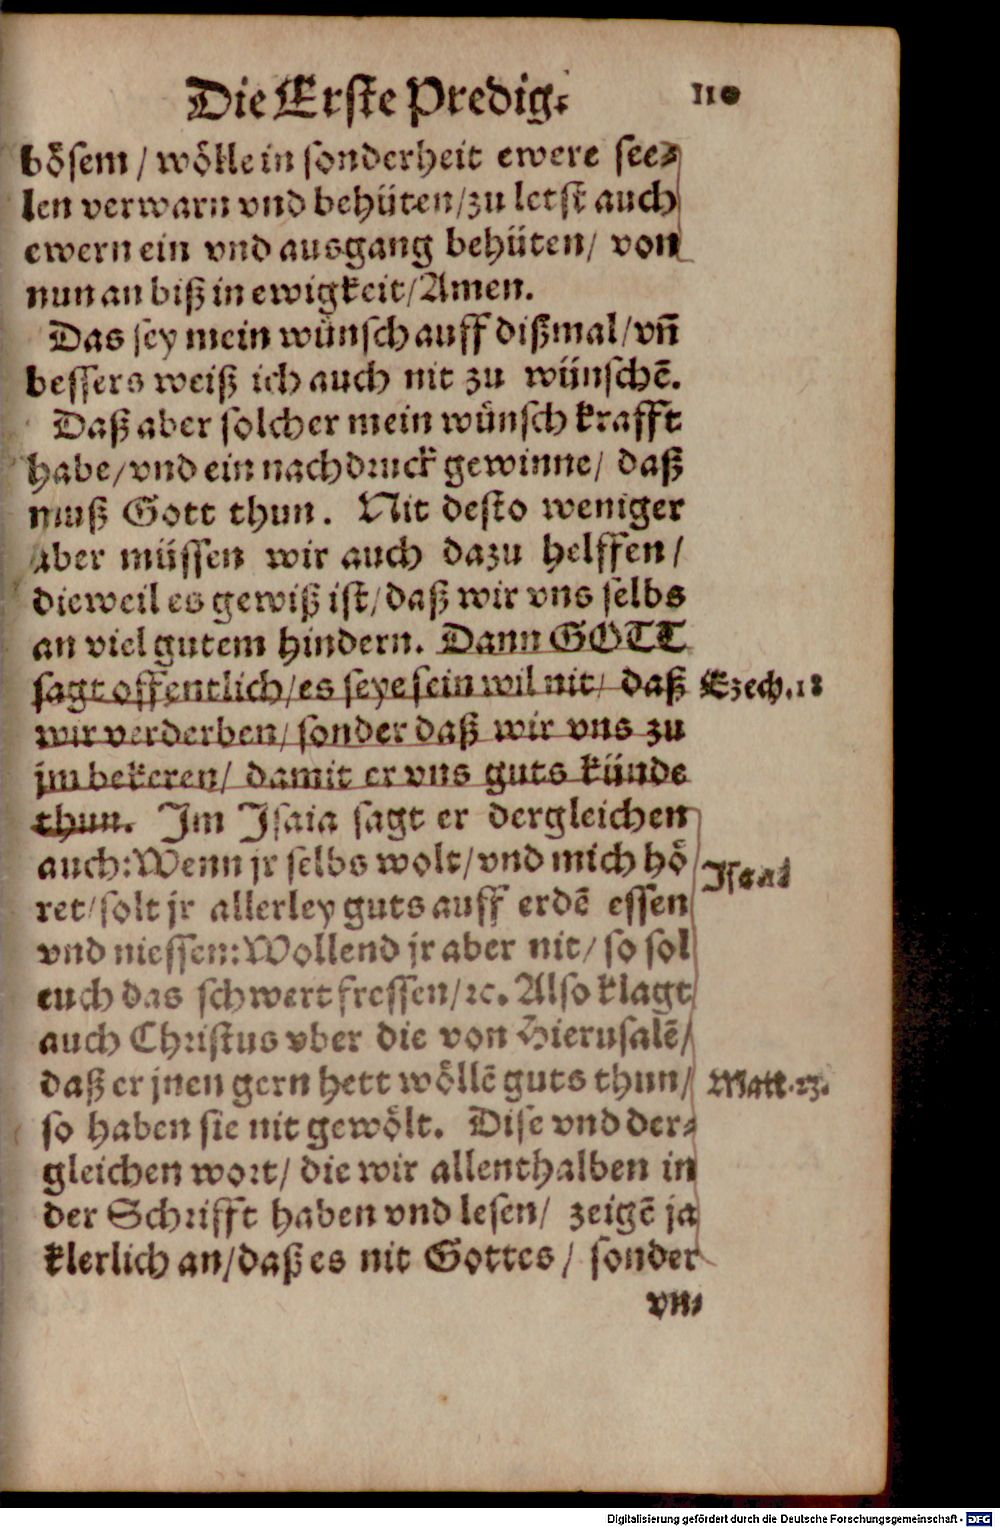 Die Erste Predig. 110
bösem / wölle in sonderheit ewere see-
len verwarn vnd behüten/zu letst auch
ewern ein vnd ausgang behüten/ von
nun an biß in ewigkeit/Amen.
Das sey mein wünsch auff dißmal/vñ
bessers weiß ich auch nit zu wünschẽ.
Daß aber solcher mein wünsch krafft
habe/vnd ein nachdruck gewinne/ daß
muß Gott thun. Nit desto weniger
aber müssen wir auch dazu helffen/
dieweil es gewiß ist/daß wir vns selbs
an viel gutem hindern. Dann GOTT
sagt offentlich/es seye sein wil nit/ daß Ezech.18
wir verderben/sonder daß wir vns zu
jm bekeren/ damit er vns guts künde
thun. Im Isaia sagt er dergleichen
auch:Wenn jr selbs wolt/vnd mich hö Isaa1
ret/solt jr allerley guts auff erdẽ essen
vnd niessen:Wollend jr aber nit/ so sol
euch das schwert fressen/ꝛc. Also klagt
auch Christus vber die von Hierusalẽ/
daß er jnen gern hett wöllẽ guts thun/ Matt.23.
so haben sie nit gewölt. Dise vnd der-
gleichen wort/ die wir allenthalben in
der Schrifft haben vnd lesen/ zeigẽ ja
klerlich an/daß es nit Gottes/ sonder
vn-
Digitalisierung gefördert durch die Deutsche Forschungsgemeinschaft - DFG